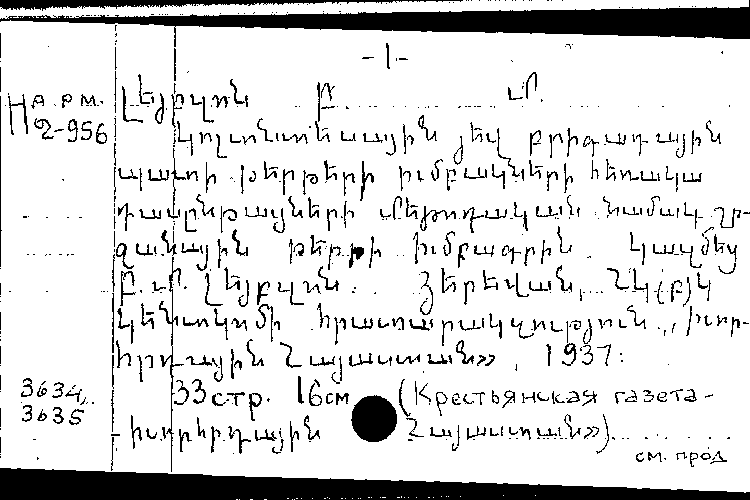 -1-
На рм. Լեյբզոն Բ. Մ.
2-956 Կոլտնտեսային յեվ բրիգադային
պատի թերթերի խմբակների հեռակա
դասընթացների մեթոդական նամակ շր-
ջանային թերթի խմբագրին. Կազմեց
Բ. Մ. Լեյբզոն. Յերեվան, ՀԿ(բ)Կ
Կենտկոմի հրատարակչություն, „Խոր-
հրդային Հայաստան», 1937:
3634, 33 стр. 16 см (Крестьянская газета -
3635 Խորհրդային Հայաստան»).
см. прод